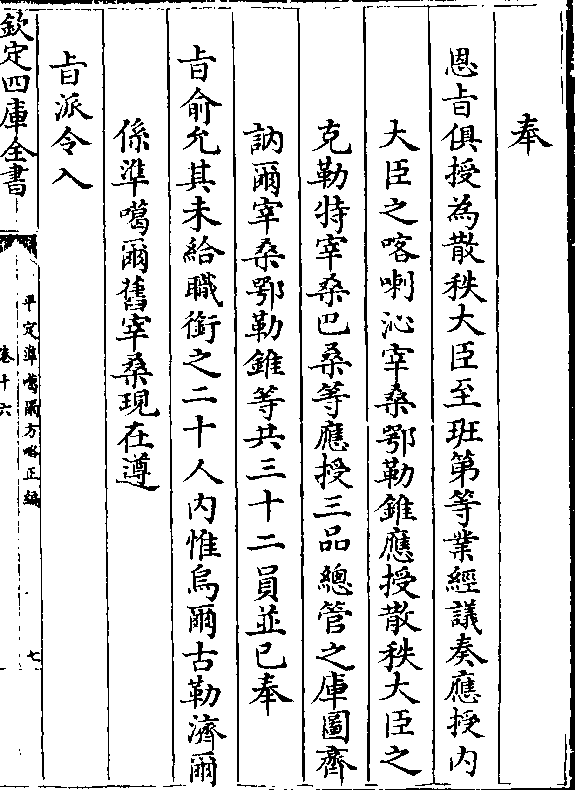 奉
恩旨俱授為散秩大臣至班第等業經議奏應授內
大臣之喀喇沁宰桑鄂勒錐應授散秩大臣之
克勒特宰桑巴桑等應授三品總管之庫圖齊
訥爾宰桑鄂勒錐等共三十二員並已奉
旨俞允其未給職銜之二十人內惟烏爾古勒濟爾
係準噶爾舊宰桑現在遵
旨派令入
欽定四庫全書
平定準噶爾方略正編
卷十六
七